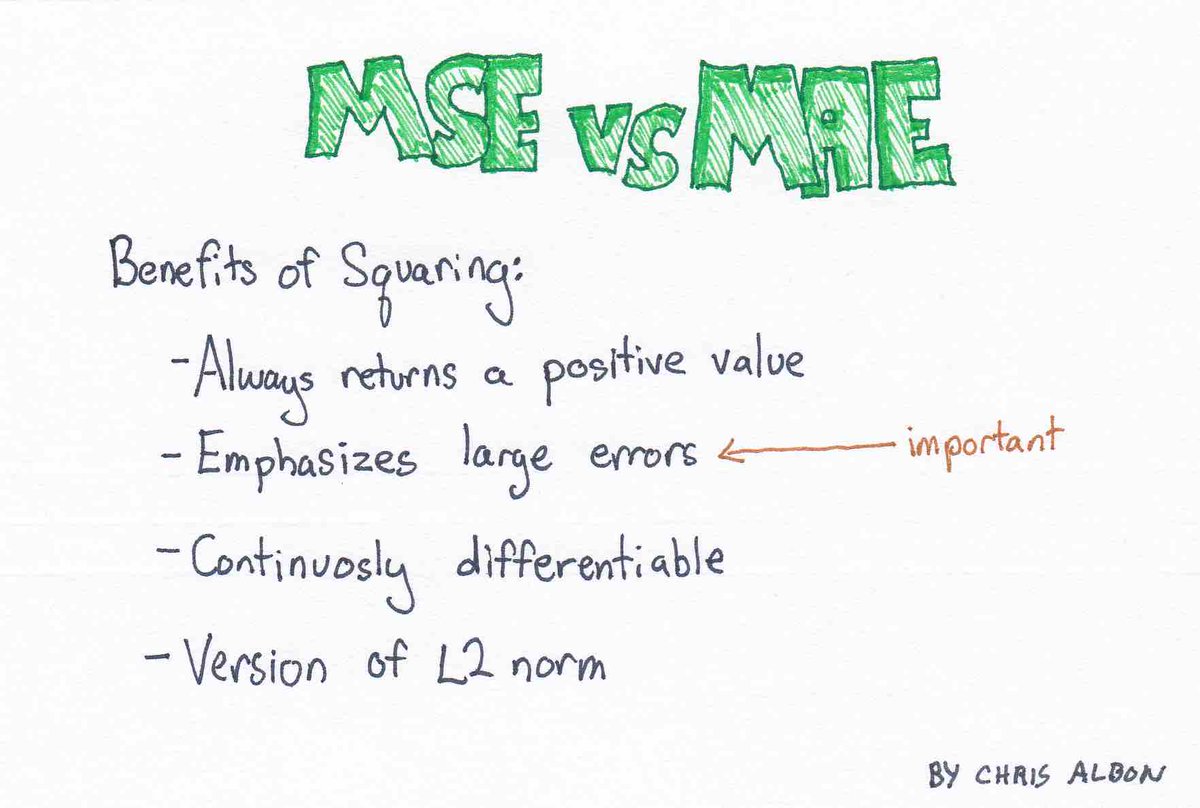 MSE vs MAE
Benefits of Squaring:
- Always returns a positive value
- Emphasizes large errors ← important
- Continuosly differentiable
- Version of L2 norm
BY CHRIS ALBON